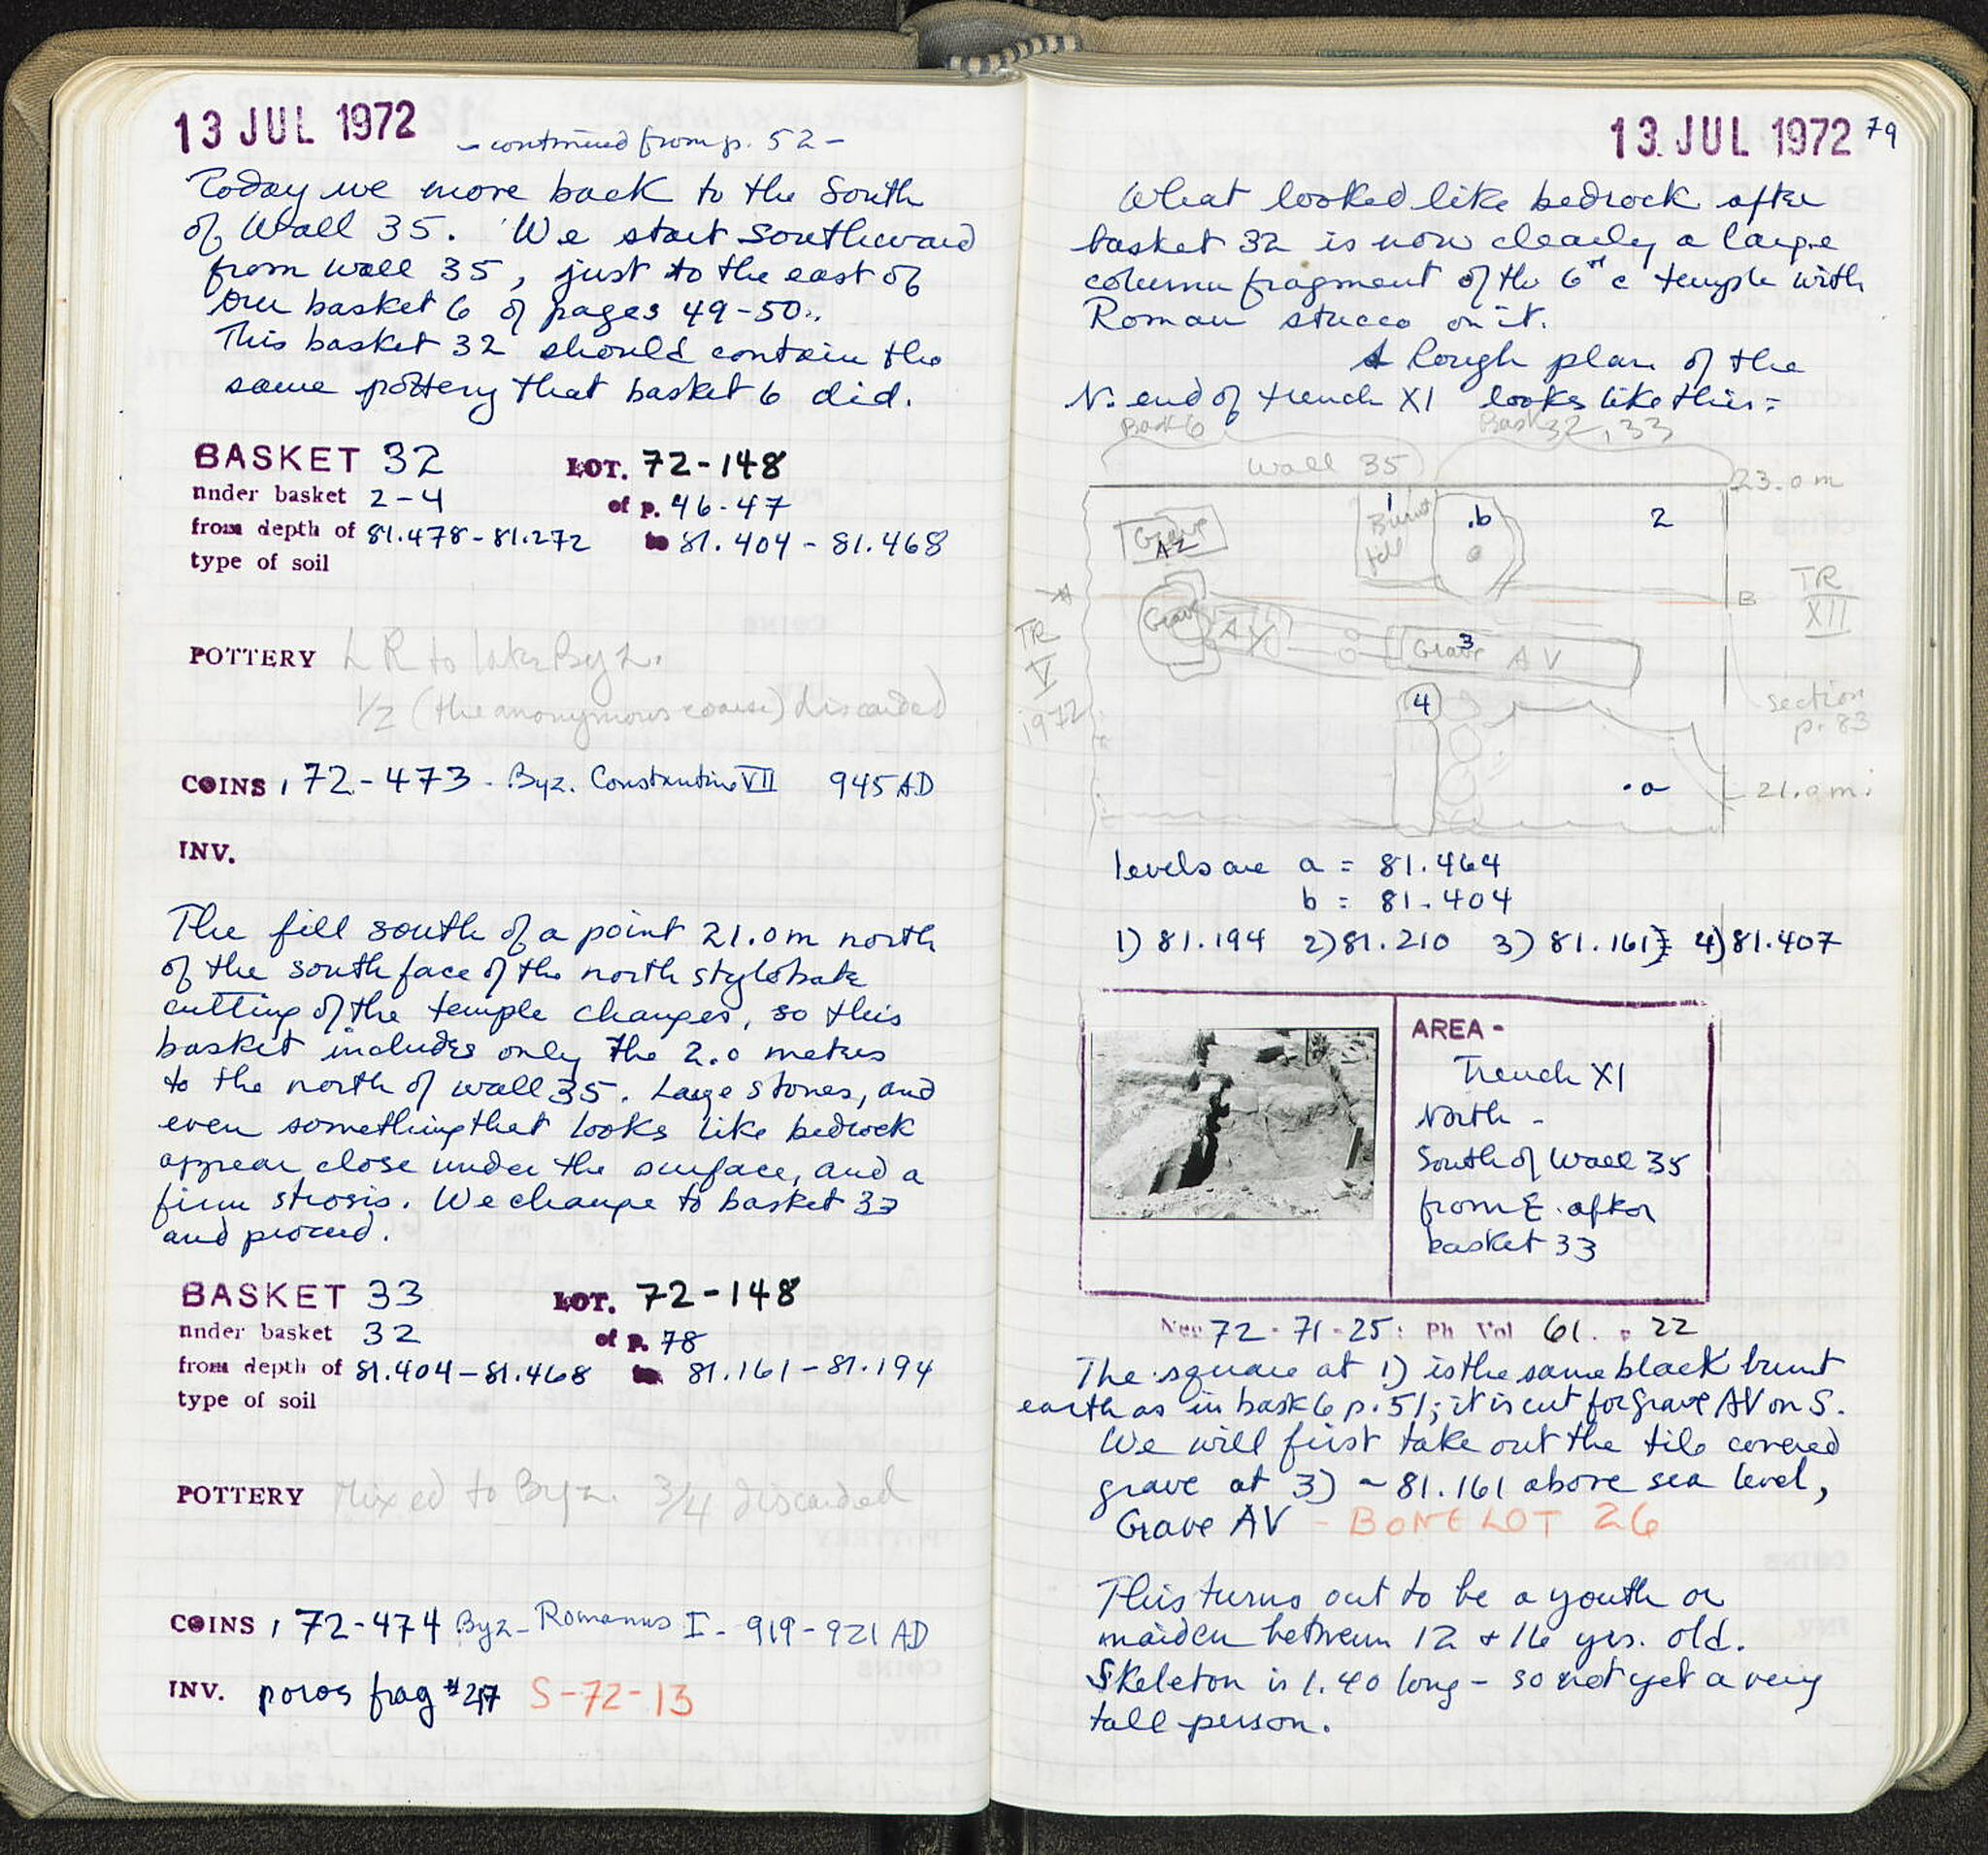 13 JUL 1972
- continued from p. 52 -
Today we move back to the South
of Wall 35. We start Southward
from wall 35, just to the east of
our basket 6 of pages 49-50.
This basket 32 should contain the
same pottery that basket 6 did.
BASKET 32 LOT. 72-148
under basket 2-4 of p. 46-47
from depth of 81.478-81.272 to 81.404-81.468
type of soil
POTTERY LR to late Byz.
1/2 (the anonymous coarse) discarded
COINS, 72-473 - Byz. Constantine VII 945 AD
INV.
The fill south of a point 21.0m north
of the south face of the north stylobate
cutting of the temple changes, so this
basket includes only the 2.0 metres
to the north of wall 35. Large stones, and
even something that looks like bedrock
appear close under the surface, and a
firm strosis. We change to basket 33
and proceed.
BASKET 33 LOT. 72-148
under basket 32 of p. 78
from depth of 81.404-81.468 to 81.161-81.194
type of soil
POTTERY Mixed to Byz. 3/4 discarded
COINS, 72-474 Byz - Romanus I - 919-921 AD
INV. poros frag # S-72-13
13 JUL 1972 79
What looked like bedrock after
basket 32 is now clearly a large
column fragment of the 6th c temple with
Roman stucco on it.
A Rough plan of the
N. end of trench XI looks like this:
Bask 6 Bask 32, 33
Wall 35 23.0 m
Grave
A2
1
Burnt
fill
.b
2
TR
XII
B
TR
V
1972
Grave AY
3
Grave AV
4
section
p. 83
.a
21.0m.
levels are a = 81.464
b = 81.404
1) 81.194 2) 81.210 3) 81.161 4) 81.407
AREA -
Trench XI
North -
South of Wall 35
from E. after
basket 33
Neg 72-71-25: Ph Vol 61. p 22
The square at 1) is the same black burnt
earth as in bask 6 p. 51; it is cut for grave AV on S.
We will first take out the tile covered
grave at 3) ~81.161 above sea level,
Grave AV - BONE LOT 26
This turns out to be a youth or
maiden between 12 + 16 yrs. old.
Skeleton is 1.40 long - so not yet a very
tall person.